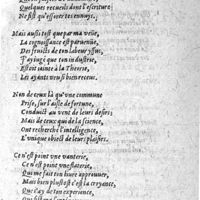 Quelques recueils dont l'escriture
Ne fist qu'esuiter tes ennuys.
Mais aussi tost que par ma veüe,
La cognoissance est paruenüe,
Des fruicts de ton labeur yssus,
I'ay iugé que ton industrie,
Estoit iointe à la Theorie,
Les ayants veus bien receus.
Non de ceux là qu'une commune
Prise, sur l'aisle de fortune,
Conduict au vent de leurs desirs;
Mais de ceux qui de la science,
Ont recherché l'intelligence,
L'unique obiect de leurs plaisirs.
Ce n'est point une vanterie,
Ce n'est point une flaterie,
Qui me fait ton liure approuuer,
Mais bien plustost c'est la croyante,
Que i'ay de ton experience,